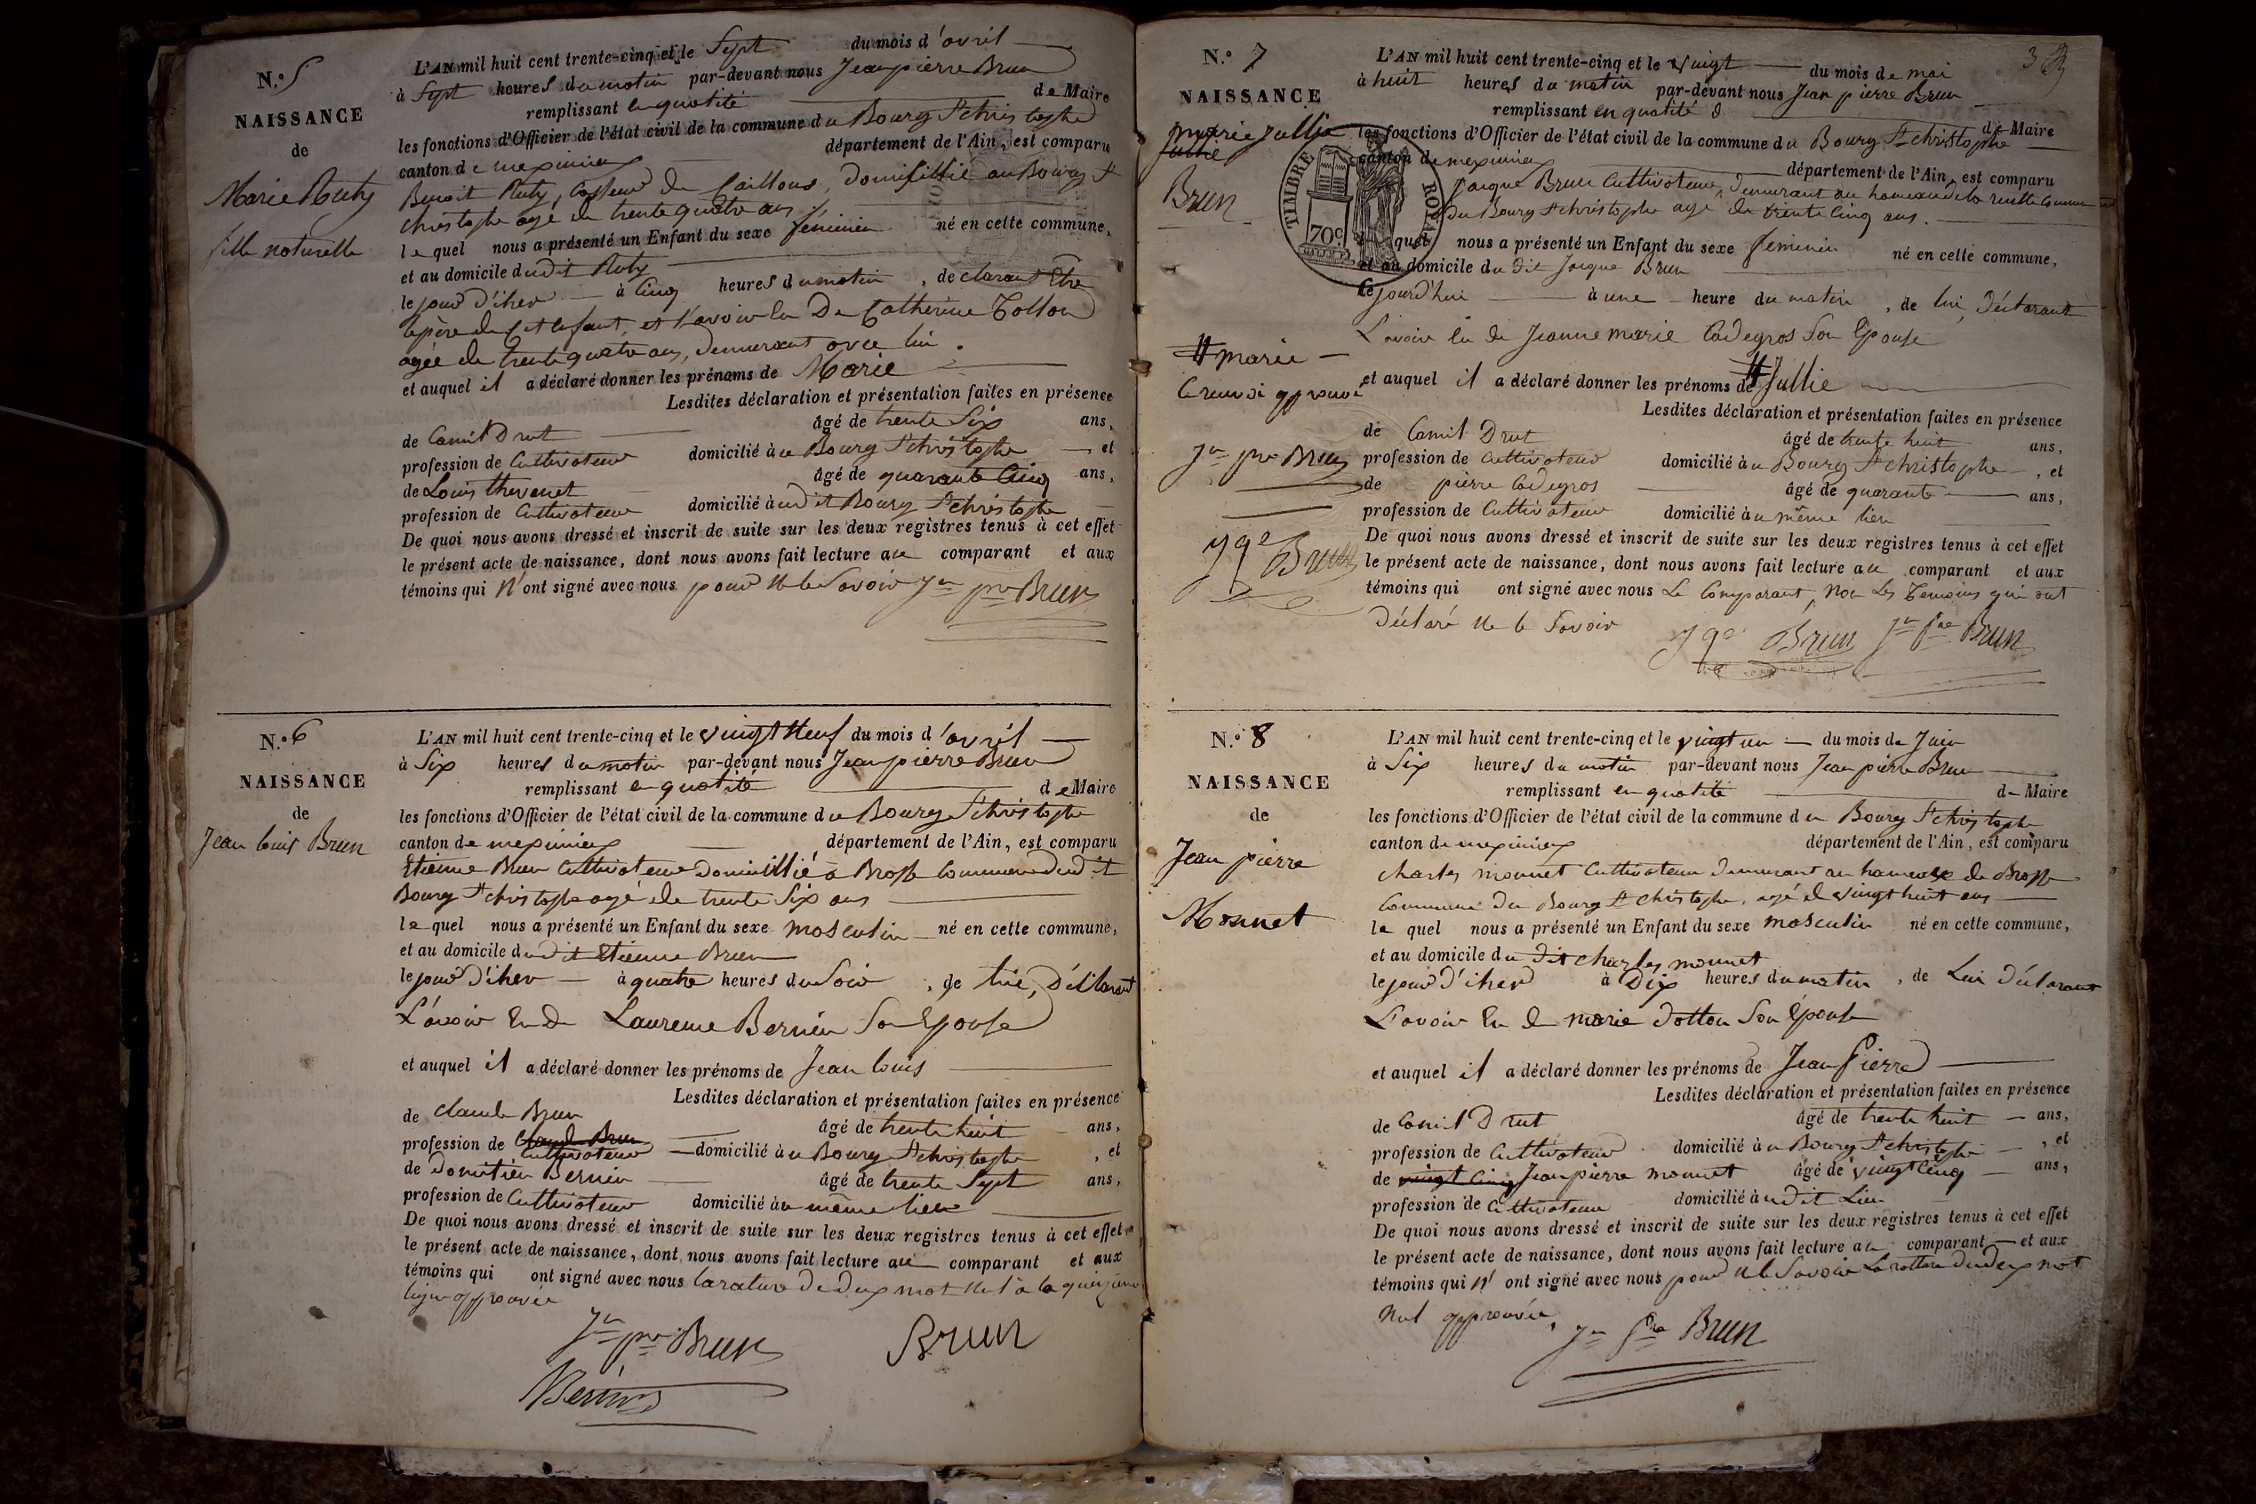 N.º 5
NAISSANCE
de
Marie Ruty
fille naturelle
L'AN mil huit cent trente-cinq et le Sept du mois d'avril
à Sept heures du matin par-devant nous Jean pierre Brun
remplissant en qualité de Maire
les fonctions d'Officier de l'état civil de la commune du Bourg St christophe
canton de meximieux département de l'Ain, est comparu
Benoit Ruty, Casseur de Caillous, domicillié au Bourg St
christophe agé de trente quatre ans
le quel nous a présenté un Enfant du sexe féminin né en cette commune,
et au domicile dudit Ruty
le jour d'hier à Cinq heures du matin, déclarant Être
le père de cet enfant, et l'avoir Eu De Catherine Tollon
agée de trente quatre ans, demeurant avec lui.
et auquel il a déclaré donner les prénoms de Marie
Lesdites déclaration et présentation faites en présence
de Camil Drut âgé de trente Six ans,
profession de Cultivateur domicilié au Bourg St christophe et
de Louis thevenet âgé de quarante Cinq ans,
profession de Cultivateur domicilié audit Bourg St christophe
De quoi nous avons dressé et inscrit de suite sur les deux registres tenus à cet effet
le présent acte de naissance, dont nous avons fait lecture au comparant et aux
témoins qui n'ont signé avec nous pour Ne le Savoir Jn pre Brun
N.º 6
NAISSANCE
de
Jean louis Brun
L'AN mil huit cent trente-cinq et le vingt Neuf du mois d'avril
à Six heures du matin par-devant nous Jean pierre Brun
remplissant en qualité de Maire
les fonctions d'Officier de l'état civil de la commune du Bourg St christophe
canton de meximieux département de l'Ain, est comparu
Etienne Brun Cultivateur domicillié à Brosse Commune dudit
Bourg St christophe agé de trente Six ans
le quel nous a présenté un Enfant du sexe masculin né en cette commune,
et au domicile dudit Etienne Brun
le jour d'hier à quatre heures du Soir, de lui, Déclarant
L'avoir Eu de Laurence Bernin Son Epouse
et auquel il a déclaré donner les prénoms de Jean louis
Lesdites déclaration et présentation faites en présence
de claude Brun âgé de trente huit ans,
profession de Claude Brun Cultivateur domicilié au Bourg St christophe, et
de Domitien Bernin âgé de trente Sept ans,
profession de Cultivateur domicilié au même lieu
De quoi nous avons dressé et inscrit de suite sur les deux registres tenus à cet effet
le présent acte de naissance, dont nous avons fait lecture au comparant et aux
témoins qui ont signé avec nous la rature de deux mot Nul à la quinzieme
ligne approuvée
Jn pre Brun Brun
Bernin
N.º 7
NAISSANCE
marie Jullie
Brun
# marie
Ce renvoi approuvé
Jn pre Brun
Jqe Brun
3
TIMBRE ROYAL
70 c.
L'AN mil huit cent trente-cinq et le vingt du mois de mai
à huit heures du matin par-devant nous Jean pierre Brun
remplissant en qualité de Maire
les fonctions d'Officier de l'état civil de la commune du Bourg St christophe
canton de meximieux département de l'Ain, est comparu
Jacque Brun Cultivateur, demeurant au hameau de la ruelle Commune
du Bourg St christophe agé de trente Cinq ans.
le quel nous a présenté un Enfant du sexe féminin né en cette commune,
et au domicile du dit Jacque Brun
ce jourd'hui à une heure du matin, de lui, Déclarant
L'avoir Eu de Jeanne marie Cadegros Son Epouse
et auquel il a déclaré donner les prénoms de # Jullie
Lesdites déclaration et présentation faites en présence
de Camil Drut âgé de trente huit ans,
profession de Cultivateur domicilié au Bourg St christophe, et
de pierre Cadegros âgé de quarante ans,
profession de Cultivateur domicilié au même lieu
De quoi nous avons dressé et inscrit de suite sur les deux registres tenus à cet effet
le présent acte de naissance, dont nous avons fait lecture au comparant et aux
témoins qui ont signé avec nous Le Comparant, Non Les temoins qui ont
Déclaré Ne le Savoir
Jqe Brun Jn pre Brun
N.º 8
NAISSANCE
de
Jean pierre
Monnet
L'AN mil huit cent trente-cinq et le vingt un du mois de Juin
à Six heures du matin par-devant nous Jean pierre Brun
remplissant en qualité de Maire
les fonctions d'Officier de l'état civil de la commune du Bourg St christophe
canton de meximieux département de l'Ain, est comparu
charles monnet Cultivateur demeurant au hameau de Brosse
Commune du Bourg St christophe, agé de vingt huit ans
le quel nous a présenté un Enfant du sexe masculin né en cette commune,
et au domicile du dit charles monnet
le jour d'hier à Dix heures du matin, de Lui Déclarant
L'avoir Eu de marie dotton Son Epouse
et auquel il a déclaré donner les prénoms de Jean Pierre
Lesdites déclaration et présentation faites en présence
de Camil Drut âgé de trente huit ans,
profession de Cultivateur domicilié au Bourg St christophe, et
de vingt Cinq Jean pierre monnet âgé de vingt Cinq ans,
profession de Cultivateur domicilié audit Lieu
De quoi nous avons dressé et inscrit de suite sur les deux registres tenus à cet effet
le présent acte de naissance, dont nous avons fait lecture au comparant et aux
témoins qui n'ont signé avec nous pour Ne le Savoir La rature de deux mot
Nul approuvée,
Jn pre Brun